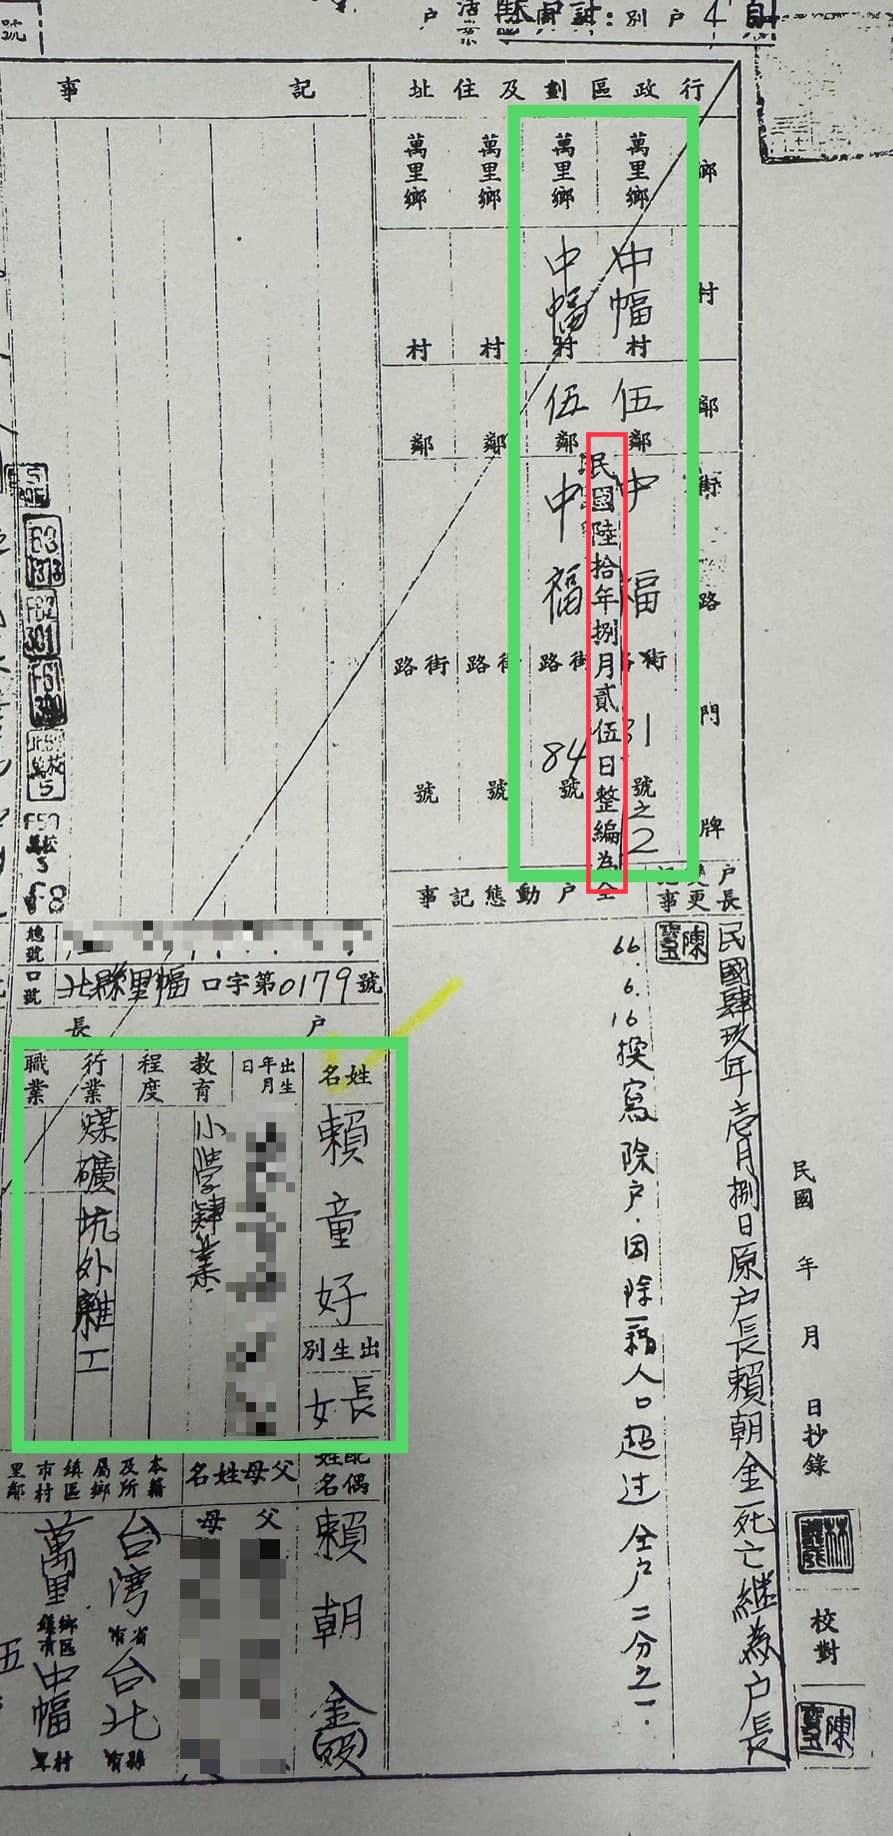 戶別:
戶
4
行政區劃及住址
記事
鄉
村
鄰
街
路
門
牌
萬里鄉
中幅村
伍鄰
中福
街
31號之2
民國陸拾年捌月貳伍日整編為全
萬里鄉
中幅村
伍鄰
中福
街路
84號
萬里鄉
村
鄰
街路
號
萬里鄉
村
鄰
街路
號
戶長變更記事
戶動態記事
民國肆玖年壱月捌日原戶長賴朝金死亡繼為戶長
陳
66.6.16換寫除戶.因除籍人口超过全戶二分之一.
民國 年 月 日抄錄
林
校對
陳
總號
口號
北縣里幅口字第0179號
戶長
姓名
賴童好
出生別
長女
出生年月日
教育程度
小學肄業
行業
職業
煤礦坑外雜工
配偶姓名
賴朝金(歿)
父母姓名
父
母
本籍及所屬鄉鎮區市村里鄰
台湾省
台北縣
萬里鄉
中幅村
伍